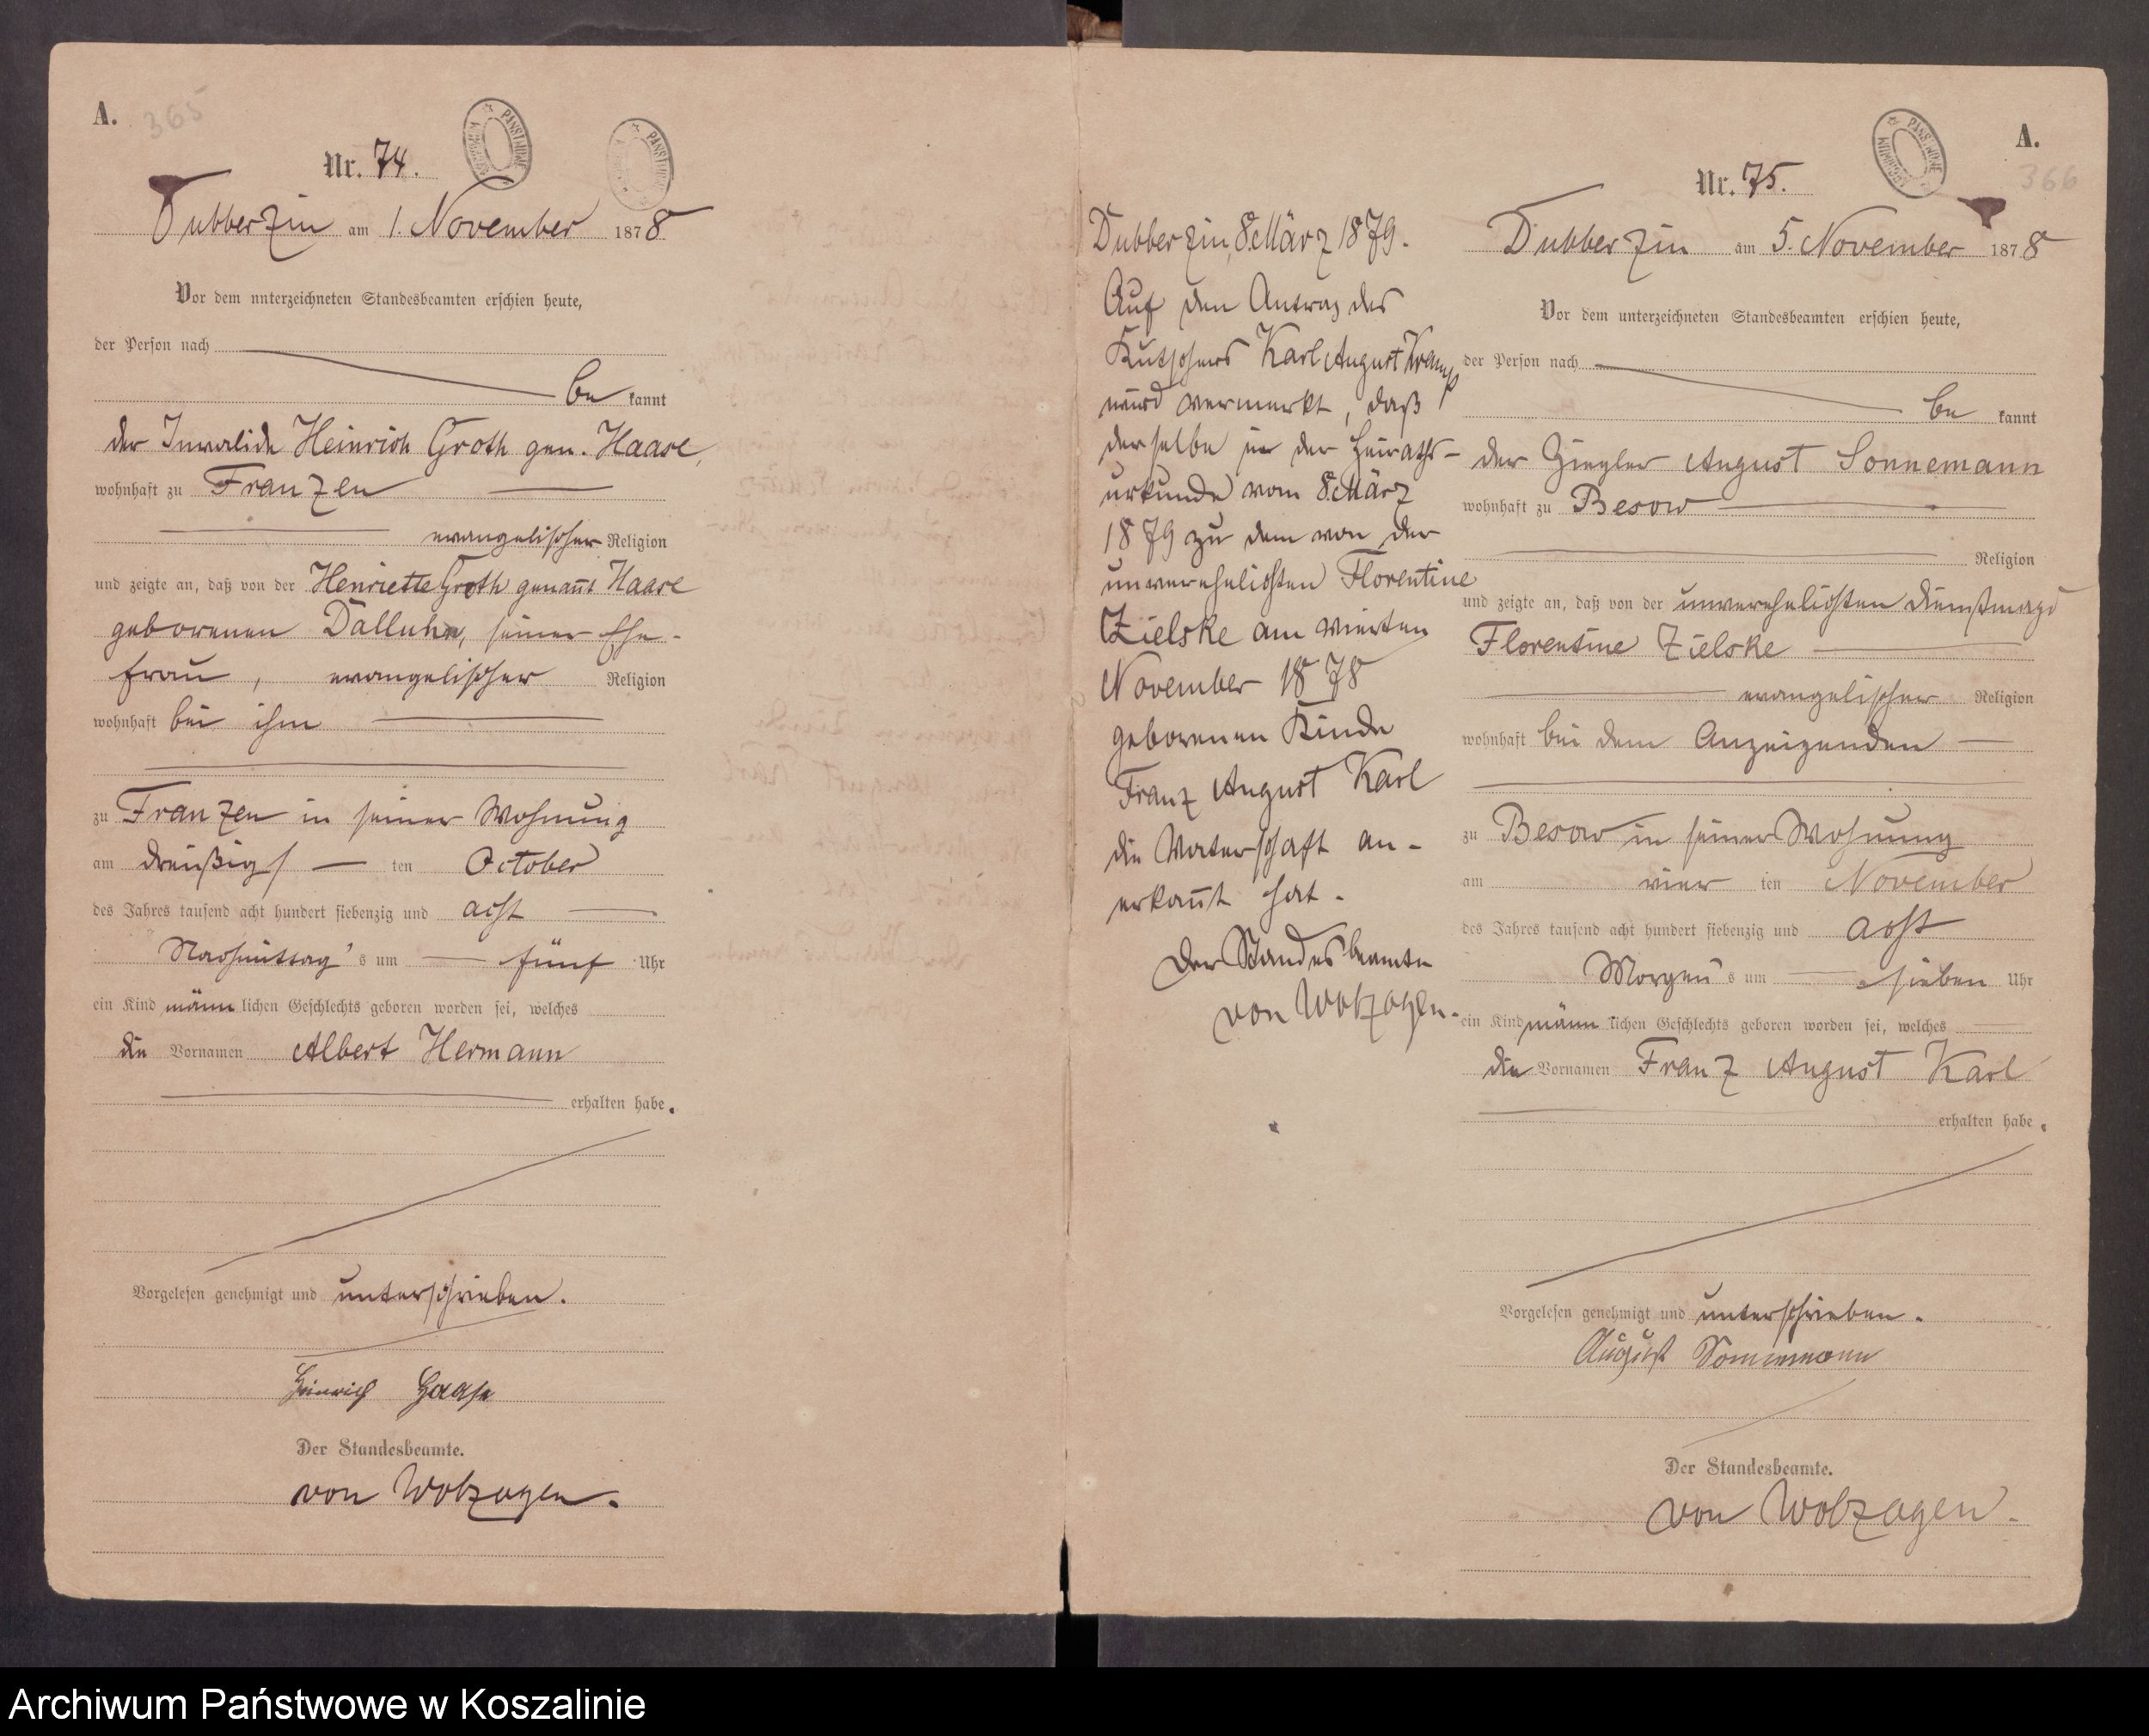 A.
365
Nr. 74.
Dubberzin am 1. November 1878
Vor dem unterzeichneten Standesbeamten erschien heute,
der Person nach
be kannt
der Invalide Heinrich Groth gen. Haase,
wohnhaft zu Franzen
evangelischer Religion
und zeigte an, daß von der Henriette Groth genannt Haase
geborenen Dalluhn, seiner Ehe-
frau, evangelischer Religion
wohnhaft bei ihm
zu Franzen in seiner Wohnung
am dreißigs ten October
des Jahres tausend acht hundert siebenzig und acht
Nachmittag's um fünf Uhr
ein Kind männlichen Geschlechts geboren worden sei, welches
die Vornamen Albert Hermann
erhalten habe.
Vorgelesen genehmigt und unterschrieben.
Heinrich Haase
Der Standesbeamte.
von Wolzogen.
Dubberzin, 8. März 1879.
Auf den Antrag des
Kutschers Karl August Kramp
wird vermerkt, daß
derselbe in der Heiraths-
urkunde vom 8. März
1879 zu dem von der
unverehelichten Florentine
Zielske am vierten
November 1878
geborenen Kinde
Franz August Karl
die Vaterschaft an-
erkannt hat.
Der Standesbeamte
von Wolzogen.
A.
366
Nr. 75.
Dubberzin am 5. November 1878
Vor dem unterzeichneten Standesbeamten erschien heute,
der Person nach
be kannt
der Ziegler August Sonnemann
wohnhaft zu Besow
Religion
und zeigte an, daß von der unverehelichten Dienstmagd
Florentine Zielske
evangelischer Religion
wohnhaft bei dem Anzeigenden
zu Besow in seiner Wohnung
am vier ten November
des Jahres tausend acht hundert siebenzig und acht
Morgen's um sieben Uhr
ein Kind männlichen Geschlechts geboren worden sei, welches
die Vornamen Franz August Karl
erhalten habe.
Vorgelesen genehmigt und unterschrieben.
August Sonnemann
Der Standesbeamte.
von Wolzogen.
Archiwum Państwowe w Koszalinie